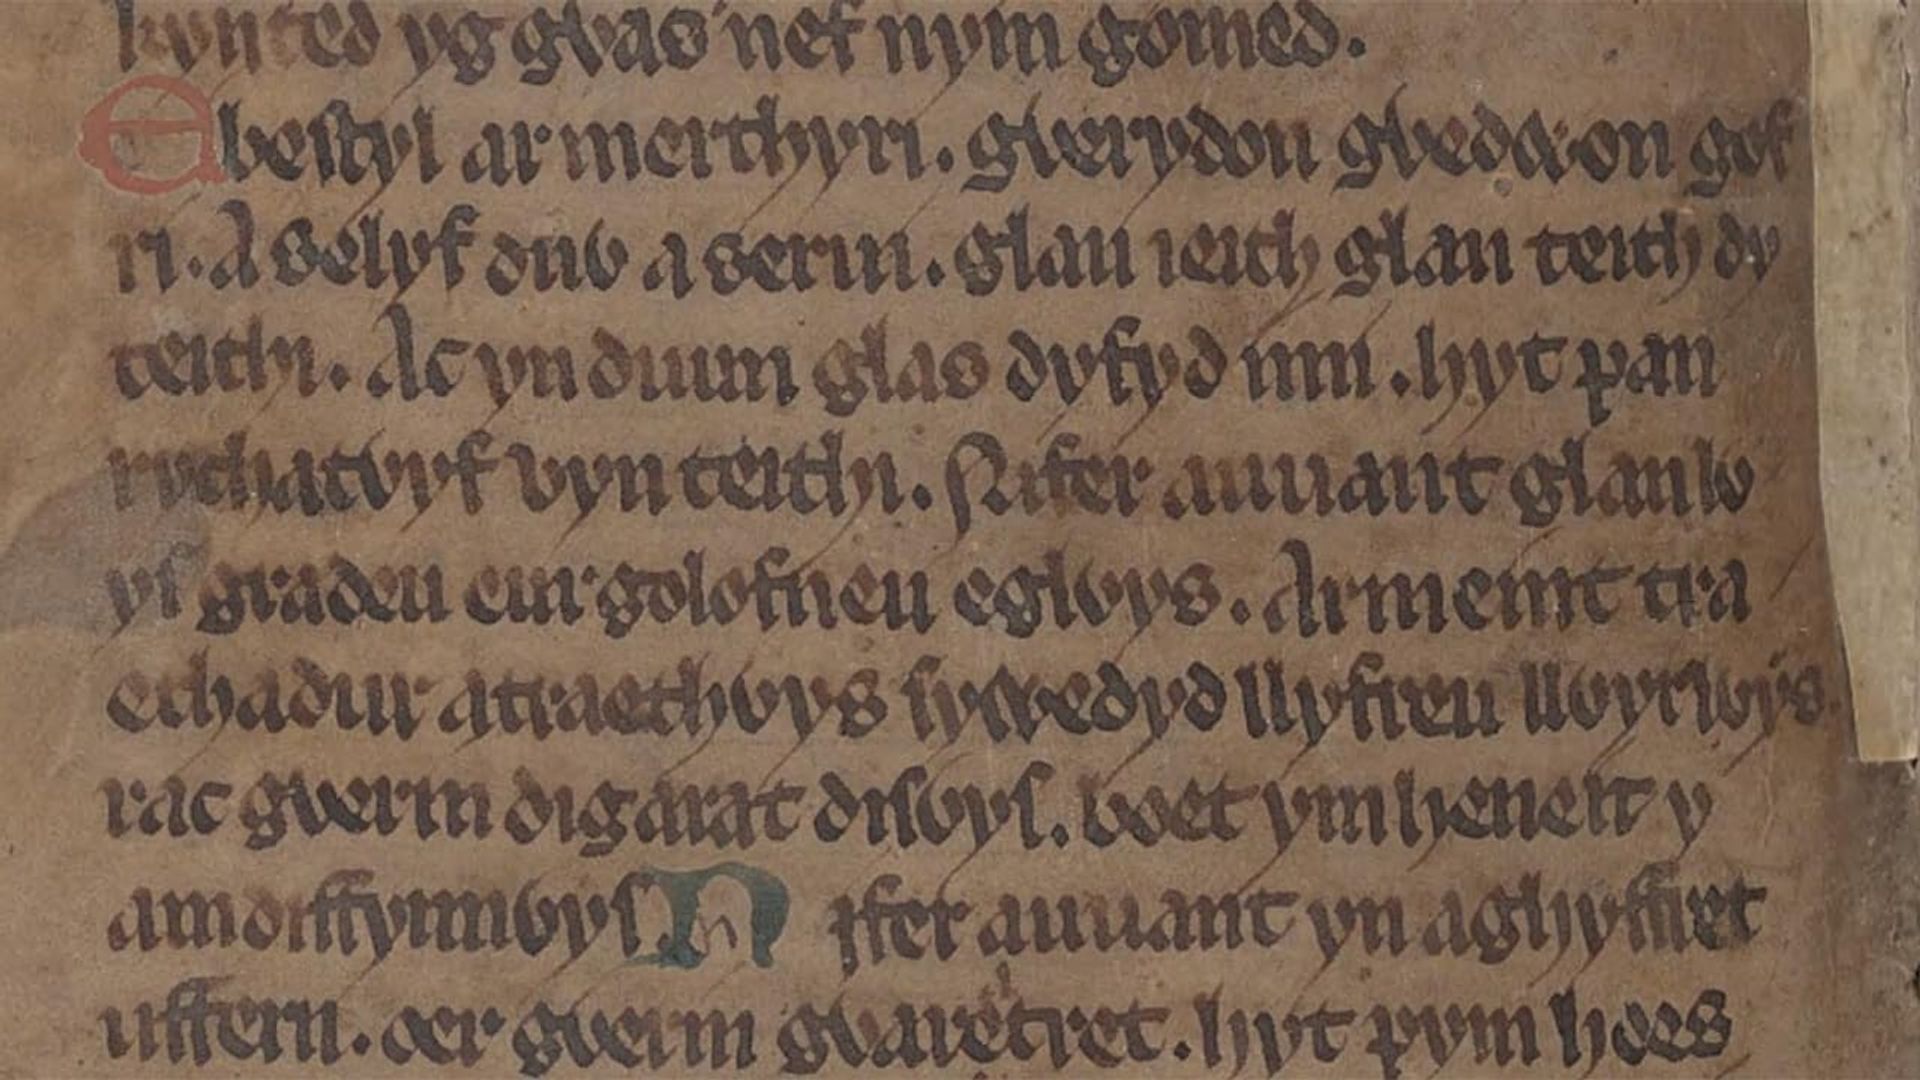 kynted yg gvas nef nym gomed.
Ebestyl ar merthyri. gverydon gvedwon gof
ri. A selyf duv a serui. glan ieith glan teith dy
teithi. Ac yn duun glas dyfyd imi. hyt pan
rychatvyf vyn teithi. Nifer auuant glan lv
ys graden eur golofneu eglvys. Ar meint tra
echadur atraethvys sywedyd llyfreu llvyrlvys.
rac gverin digarat disvys. boet ym heneit y
amdiffynnvys. Nifer auuant yn aghyffret
uffern. oer gverin gvaretret. hyt pym hoes